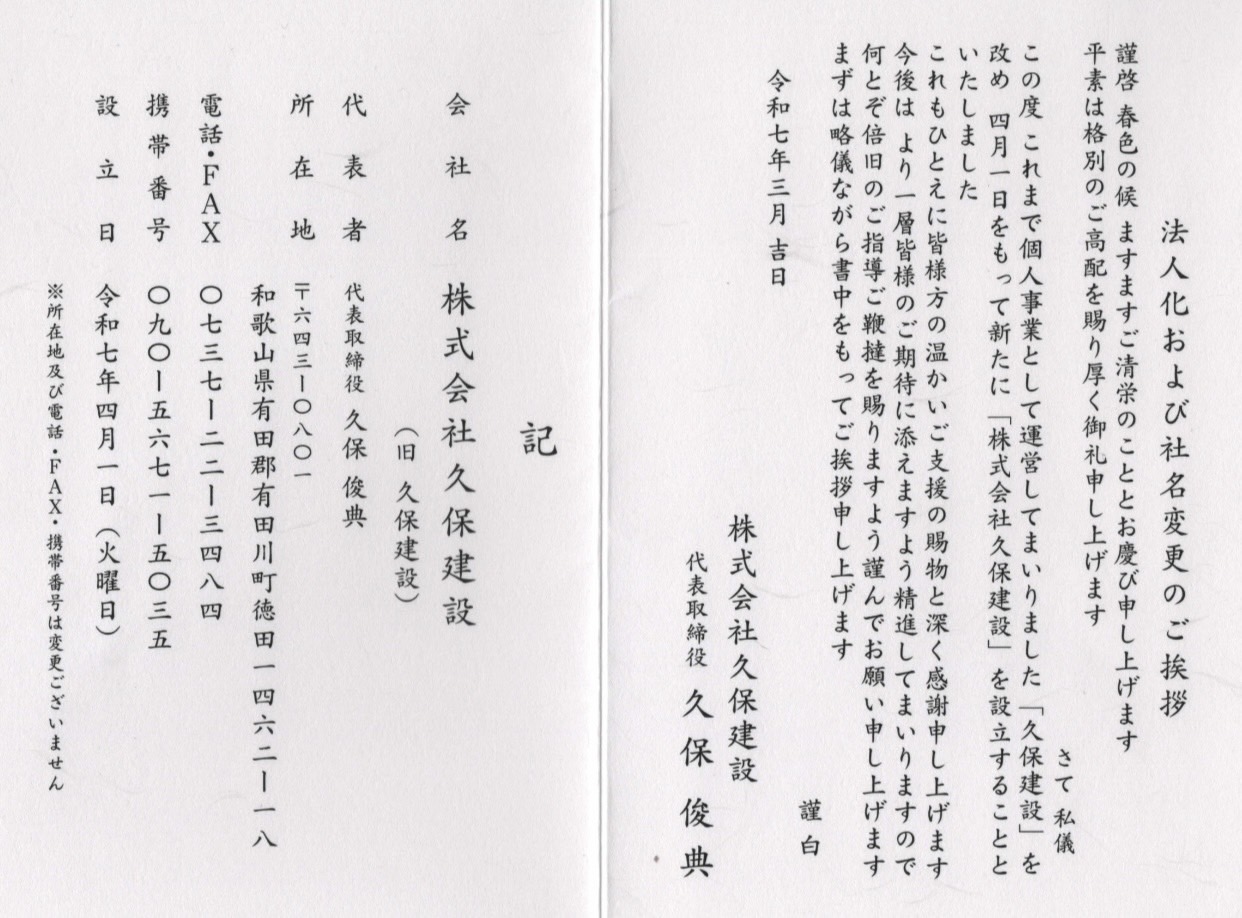 法人化および社名変更のご挨拶
謹啓 春色の候 ますますご清栄のこととお慶び申し上げます
平素は格別のご高配を賜り厚く御礼申し上げます
さて 私儀
この度 これまで個人事業として運営してまいりました「久保建設」を
改め 四月一日をもって新たに「株式会社久保建設」を設立することと
いたしました
これもひとえに皆様方の温かいご支援の賜物と深く感謝申し上げます
今後は より一層皆様のご期待に添えますよう精進してまいりますので
何とぞ倍旧のご指導ご鞭撻を賜りますよう謹んでお願い申し上げます
まずは略儀ながら書中をもってご挨拶申し上げます
謹白
令和七年三月 吉日
株式会社久保建設
代表取締役 久保 俊典
記
会社名 株式会社久保建設
（旧 久保建設）
代表者 代表取締役 久保 俊典
所在地 〒六四三ー〇八〇一
和歌山県有田郡有田川町徳田一四六二ー一八
電話・FAX 〇七三七ー二二ー三四八四
携帯番号 〇九〇ー五六七一ー五〇三五
設立日 令和七年四月一日（火曜日）
※所在地及び電話・FAX・携帯番号は変更ございません